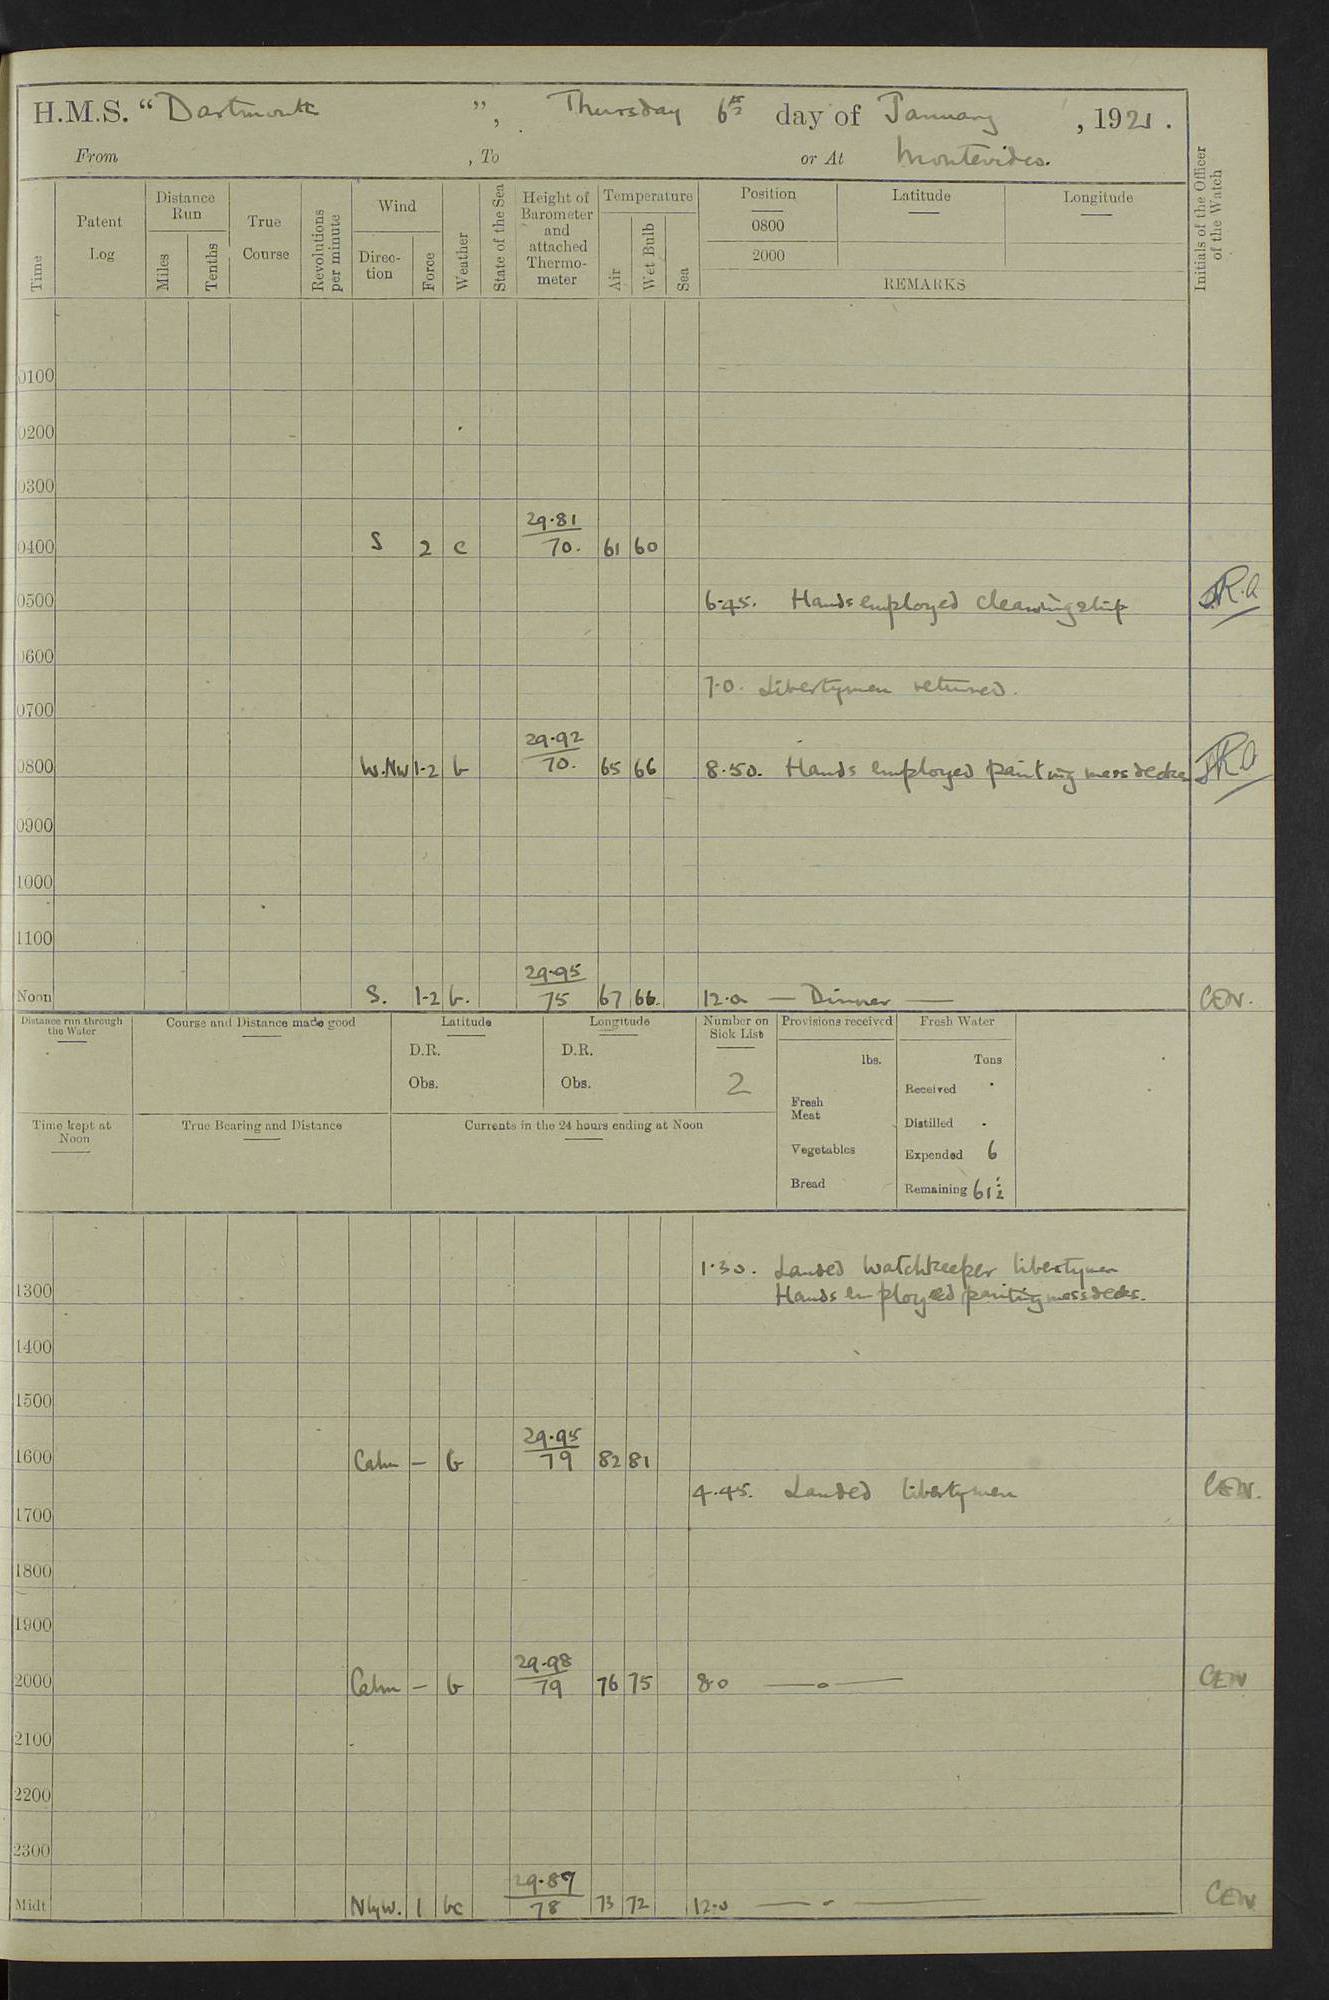 H.M.S. “Dartmouth”, Thursday 6th day of January, 1921.
From , To or At Montevideo.
Time
Patent Log
Distance Run
Miles
Tenths
True Course
Revolutions per minute
Wind
Direction
Force
Weather
State of the Sea
Height of Barometer and attached Thermometer
Temperature
Air
Wet Bulb
Sea
Position Latitude Longitude
0800
2000
REMARKS
Initials of the Officer of the Watch
0100
0200
0300
29.81
0400 S 2 c 70. 61 60
0500 6.45. Hands employed cleaning ship
0600
7.0. Libertymen returned.
0700
29.92
0800 W.NW 1-2 b 70. 65 66 8.50. Hands employed painting mess decks
0900
1000
1100
29.95
Noon S. 1-2 b. 75 67 66. 12.0 — Dinner — CEW.
Distance run through the Water
Course and Distance made good
Latitude
D.R.
Obs.
Longitude
D.R.
Obs.
Number on Sick List
2
Provisions received
lbs.
Fresh Meat
Vegetables
Bread
Fresh Water
Tons
Received .
Distilled .
Expended 6
Remaining 61½
Time kept at Noon
True Bearing and Distance
Currents in the 24 hours ending at Noon
1.30. Landed Watchkeeper libertymen
1300 Hands employed painting mess decks.
1400
1500
29.95
1600 Calm — b 79 82 81
4.45. Landed libertymen CEW.
1700
1800
1900
29.98
2000 Calm — b 79 76 75 8.0 —o— CEW
2100
2200
2300
29.89
Midt NlyW. 1 bc 78 73 72 12.0 — - — CEW